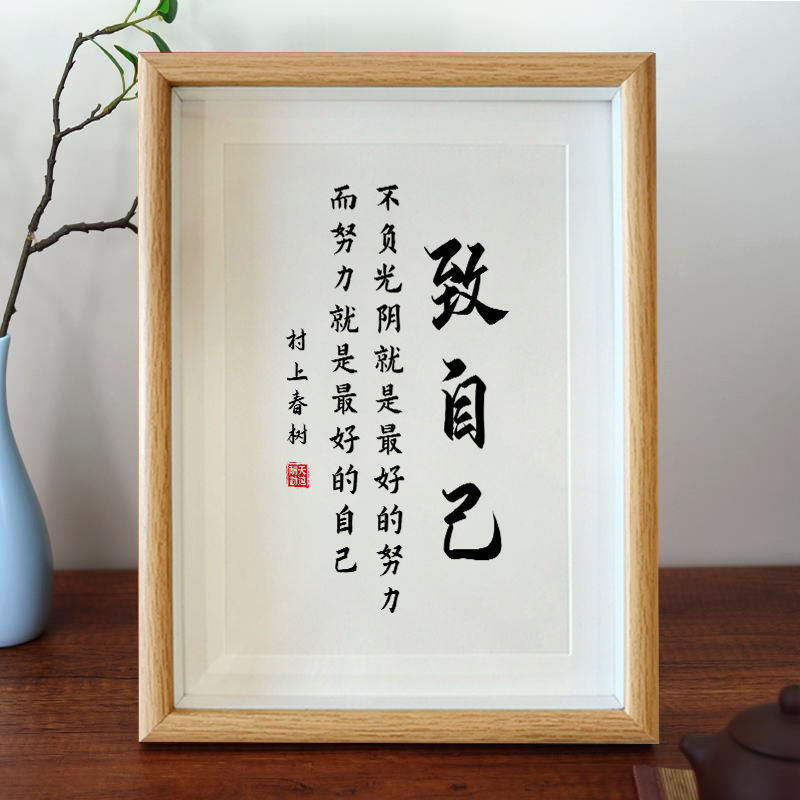 致自己
不负光阴就是最好的努力
而努力就是最好的自己
村上春树
天道酬勤